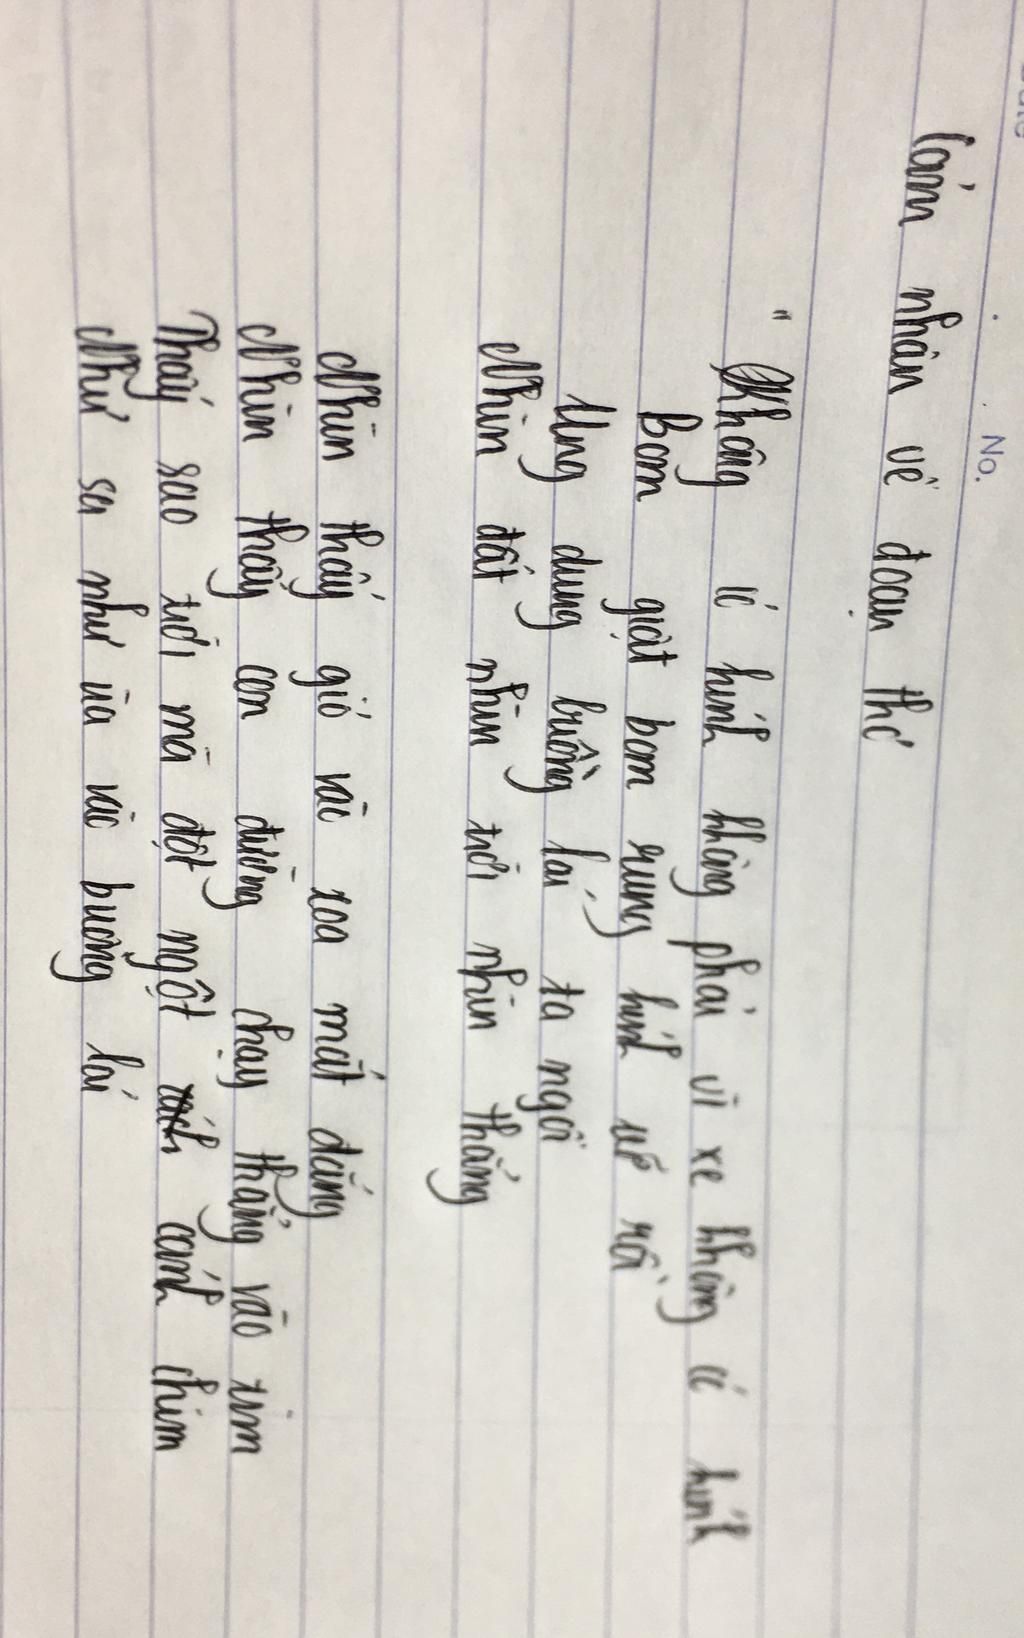 Date
No.
Cảm nhân về đoạn thơ
" Không có kính không phải vì xe không có kính
Bom giật bom rung kính vỡ rồi
Ung dung buồng lái ta ngồi
Nhìn đất nhìn trời nhìn thẳng
Nhìn thấy gió vào xoa mắt đắng
Nhìn thấy con đường chạy thẳng vào tim
Thấy sao trời mà đột ngột cánh chim
Như sa như ùa vào buồng lái